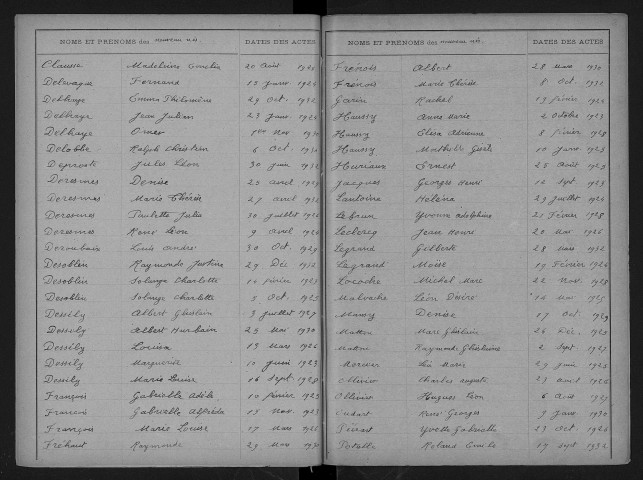 NOMS ET PRÉNOMS des nouveau nés. DATES DES ACTES
Clausse Madeleine Emelie 20 Août
Delevaque Fernand 13 janv 1926
Emma Philomène 29 Oct.
Delhaye Jean Julien 23 janv 1926
Delhaye Omer 1er Nov 1930
Delobbe Ralph Christian 6 Oct.
Jules Léon 30 juin
Deresmes Denise 23 avril 1929
Deresmes Marie Thérèse 27 avril
Deresmes Paulette Julia 30 juillet
Deresmes René Léon 9 avril
Deroubaix Louis André 30 Oct. 1929
Desoblin Raymonde Justine 29 Déc 1932
Desoblin Solange Charlotte 14 février 1923
Desoblin Solange Charlotte 3 Oct. 1923
Dessily Albert Ghislain 3 juillet 1927
Dessily Albert Hurbain 25 Mai 1930
Dessily Louisa 13 Mars 1926
Dessily Marguerite 10 juin 1923
Dessily Marie Louise 16 Sept 1928
François Gabrielle Adèle 10 février 1923
François Gabrielle Alfréda 15 Nov. 1923
François Marie Louise 17 Mars
Fréhaut Raymonde 29 Mars
NOMS ET PRÉNOMS des nouveau nés. DATES DES ACTES
Frénois Albert 28 Mars 1930
Frénois Marie Thérèse 8 Oct.
Garin Rachel 19 février
Haussy Anne Marie 2 Octobre 1923
Haussy Elisa Adrienne 8 février 1928
Haussy 10 janv 1923
Huriaux Ernest 25 Août 1929
Jacques Georges Henri 12 Sept 1923
Lantoine Héléna 29 juillet
Lebrun Yvonne Adolphine 21 Février 1928
Leclercq Jean Henri 20 Mai 1926
Legrand Gilberte 28 Mars 1932
Legrand Moïse 19 Février 1926
Locoche Michel Marc 22 Nov. 1929
Malvache Léon Désiré 14 Mai 1925
Denise 17 Oct. 1929
Matton Marc Ghislain 26 Déc. 1923
Matton Raymonde Ghislaine 2 Sept 1927
Mercier Marie 29 juin 1923
Ollivier Charles Auguste 23 avril
Ollivier Hugues Léon 6 Août
Oudart René Georges 9 janv 1930
Yvette Gabrielle 23 Oct
Roland Emile 17 Sept 1932